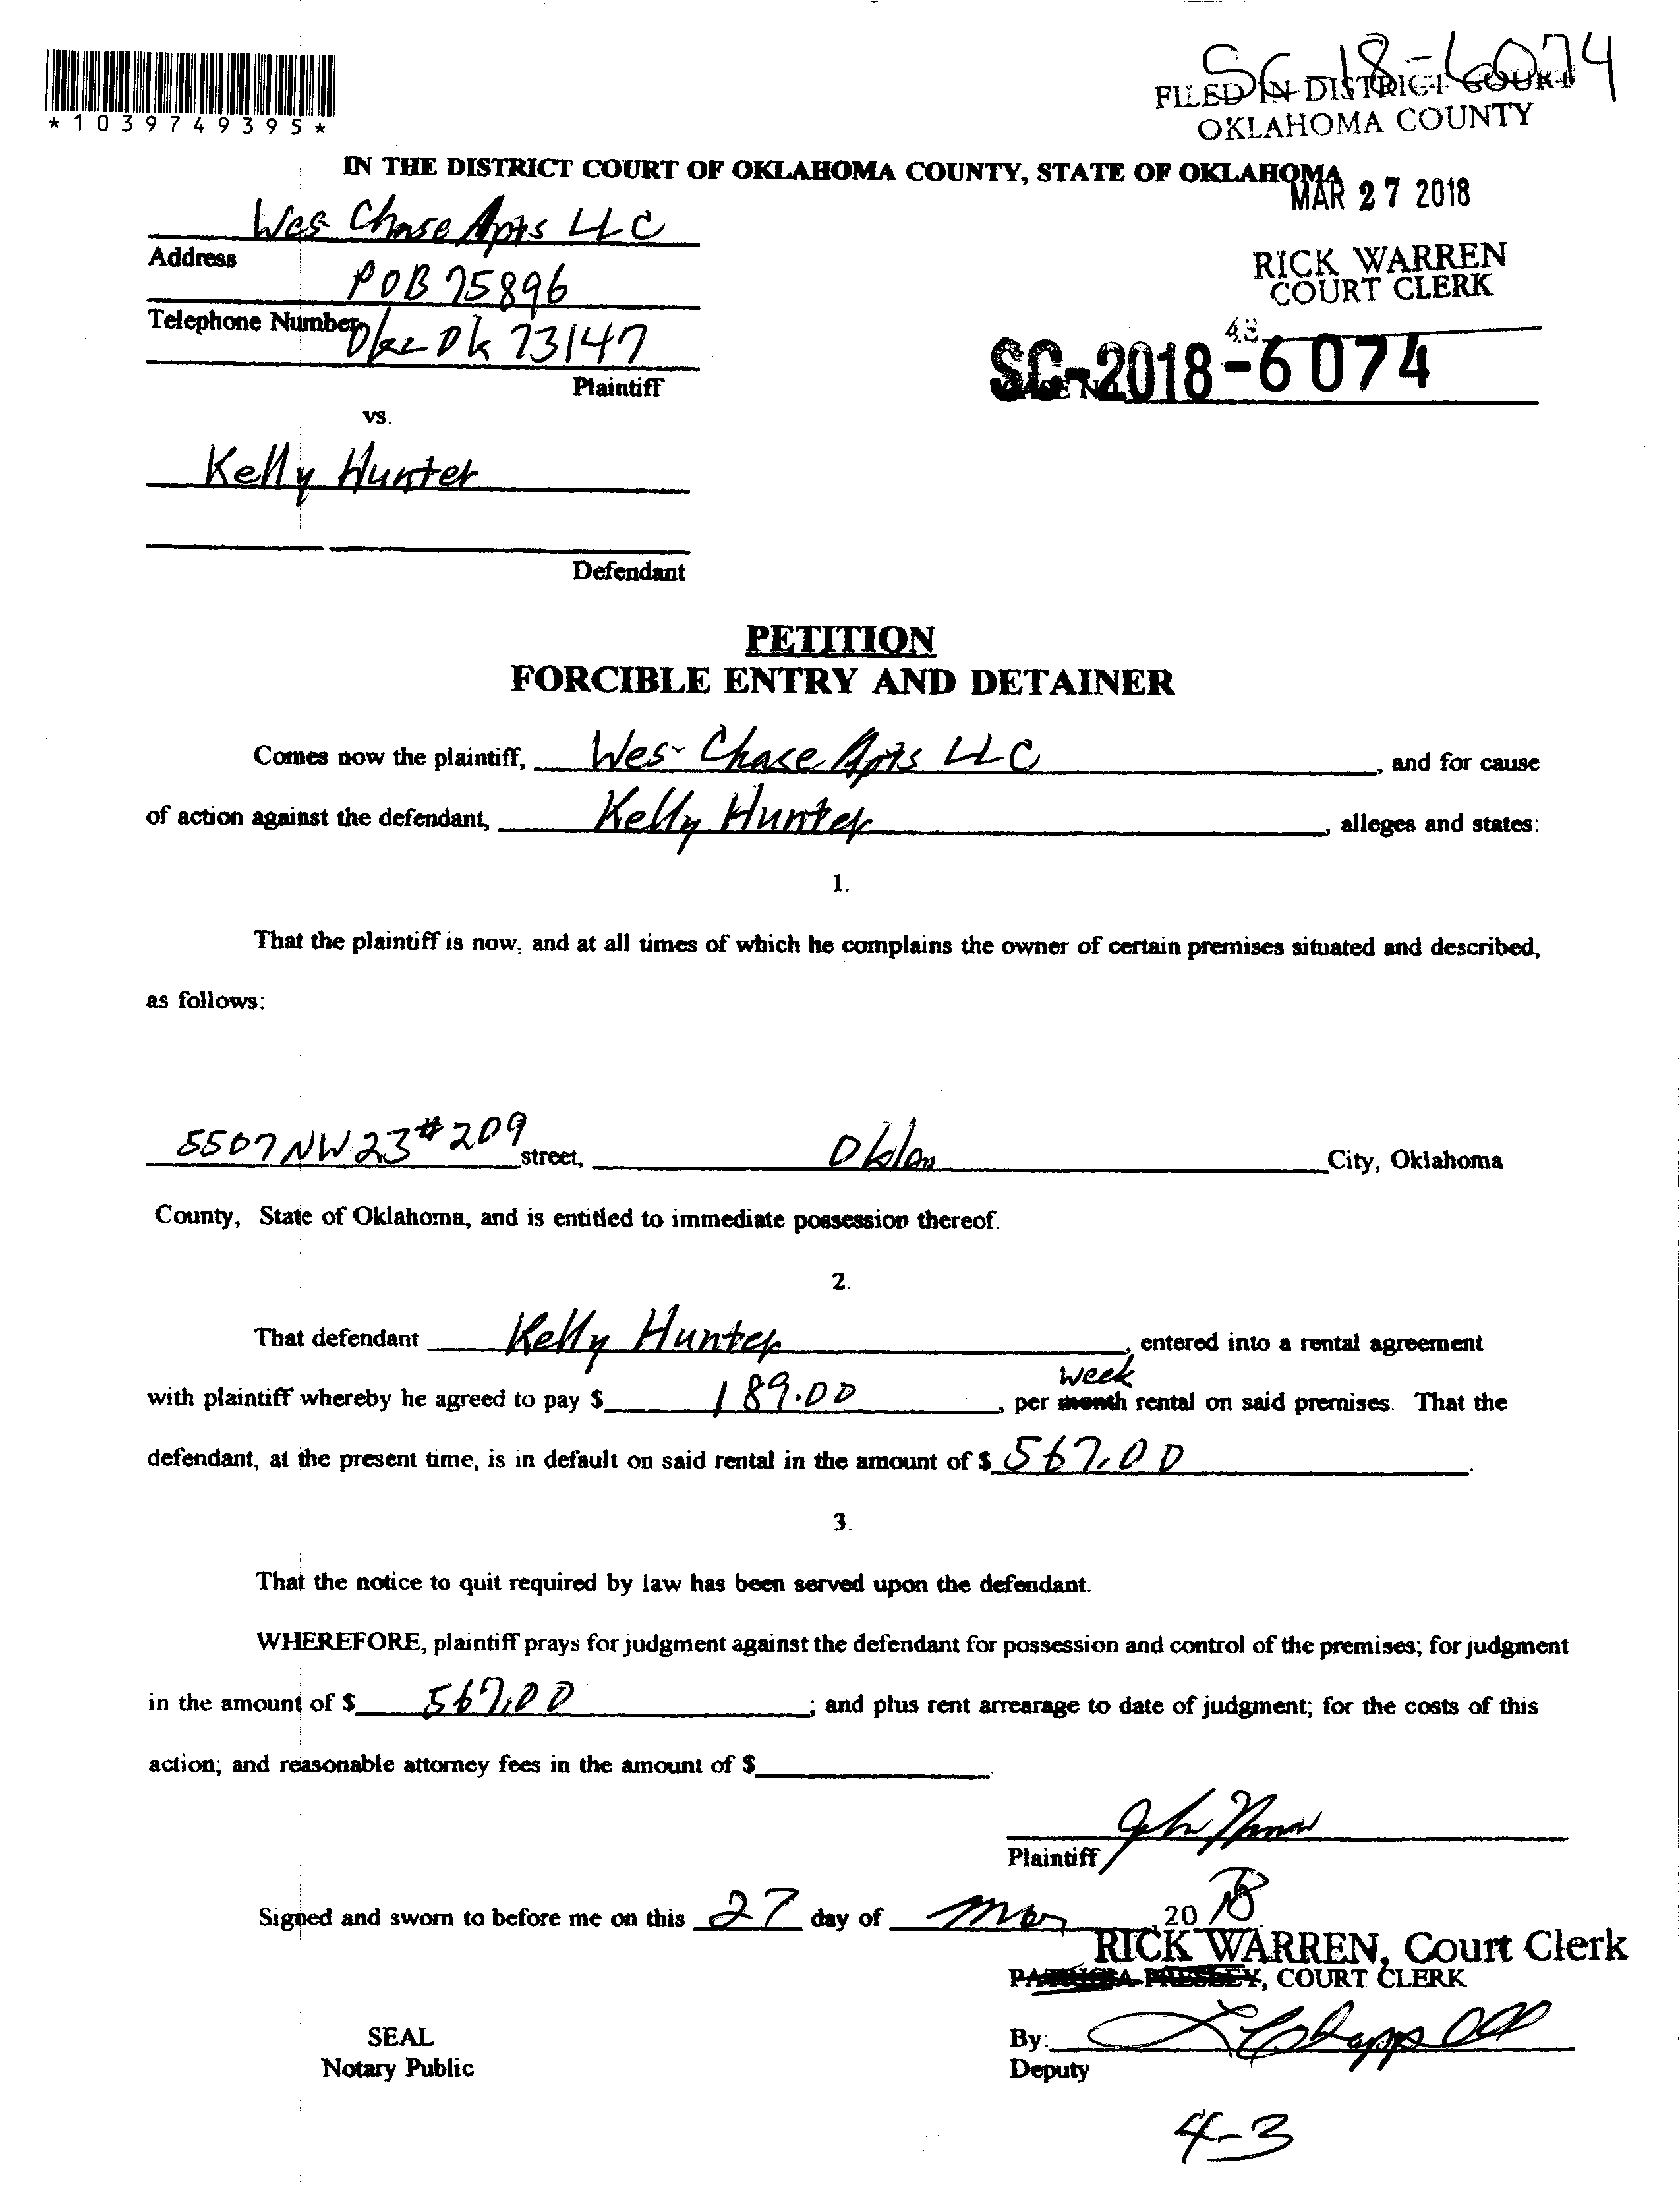 SC-18-6074
*1039749395*
FILED IN DISTRICT COURT
OKLAHOMA COUNTY
IN THE DISTRICT COURT OF OKLAHOMA COUNTY, STATE OF OKLAHOMA
MAR 27 2018
Wes Chase Apts LLC
Address
POB 75896
RICK WARREN
COURT CLERK
Telephone Number
Okc Ok 73147
43
SC-2018-6074
CASE NO.
Plaintiff
vs.
Kelly Hunter
Defendant
PETITION
FORCIBLE ENTRY AND DETAINER
Comes now the plaintiff, Wes-Chase Apts LLC, and for cause
of action against the defendant, Kelly Hunter, alleges and states:
1.
That the plaintiff is now, and at all times of which he complains the owner of certain premises situated and described,
as follows:
5507 NW 23 #209 street, Oklan City, Oklahoma
County, State of Oklahoma, and is entitled to immediate possession thereof.
2.
That defendant Kelly Hunter, entered into a rental agreement
week
with plaintiff whereby he agreed to pay $ 189.00, per month rental on said premises. That the
defendant, at the present time, is in default on said rental in the amount of $ 567.00.
3.
That the notice to quit required by law has been served upon the defendant.
WHEREFORE, plaintiff prays for judgment against the defendant for possession and control of the premises; for judgment
in the amount of $ 567.00; and plus rent arrearage to date of judgment; for the costs of this
action; and reasonable attorney fees in the amount of $
Plaintiff
Signed and sworn to before me on this 27 day of Mar, 20 18
RICK WARREN, Court Clerk
PATRICIA PRESLEY, COURT CLERK
SEAL
Notary Public
By:
Deputy
4-3